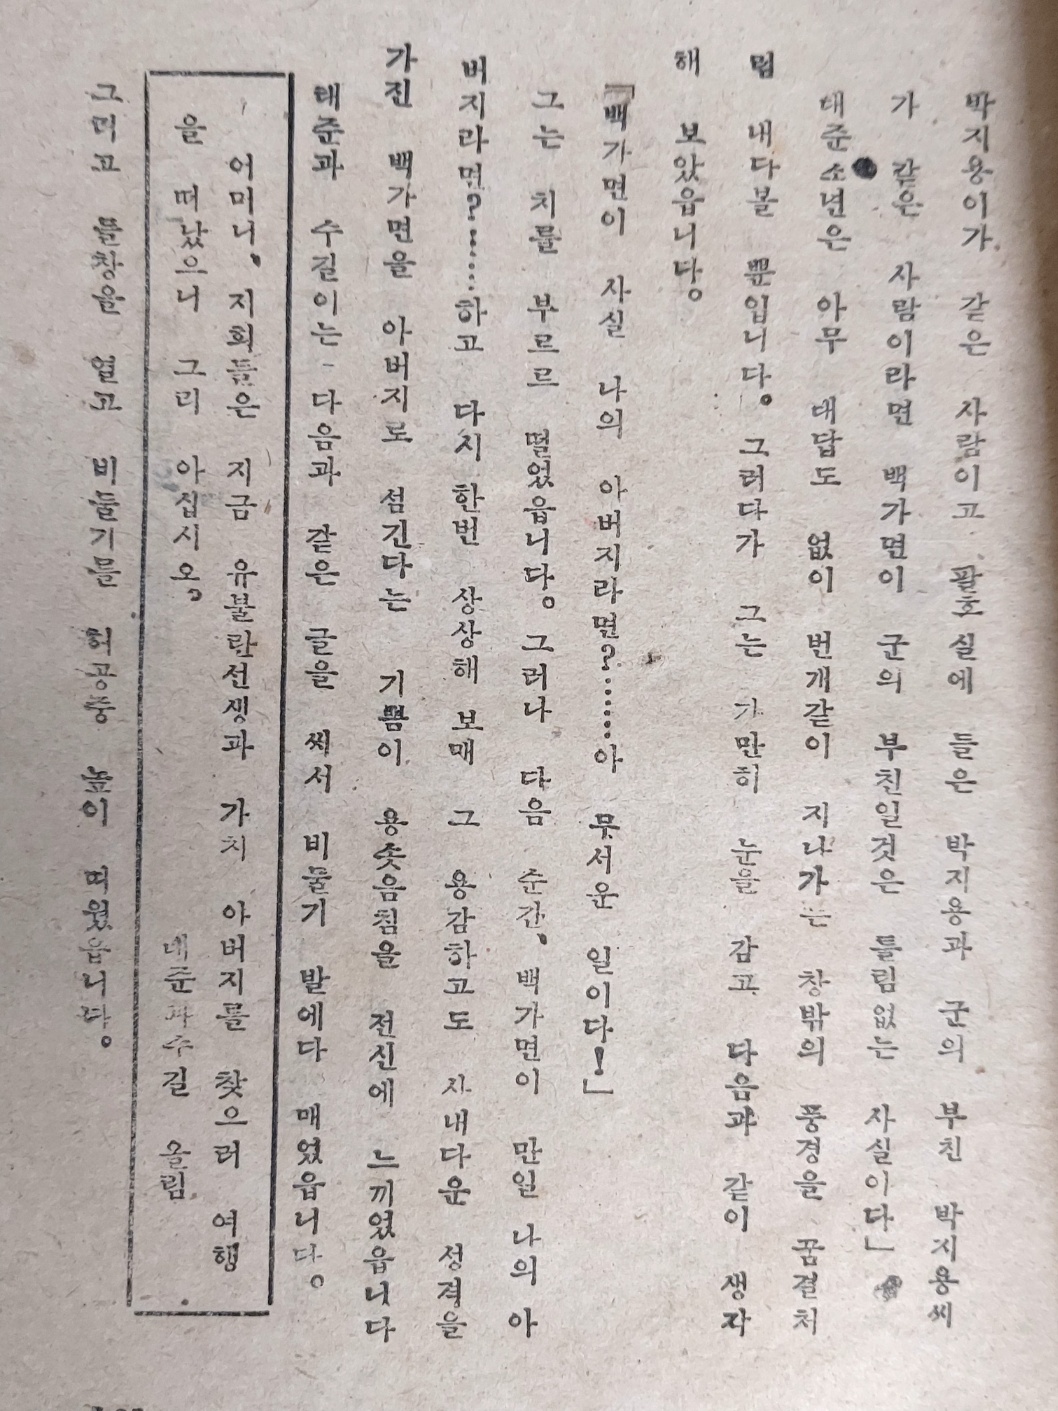 박지용이가 같은 사람이고 팔호실에 들은 박지용과 군의 부친 박지용씨
가 같은 사람이라면 백가면이 군의 부친일것은 틀림없는 사실이다」
대준소년은 아무 대답도 없이 번개같이 지나가는 창밖의 풍경을 꿈결처
럼 내다볼 뿐입니다。그러다가 그는 가만히 눈을 감고 다음과 같이 생각
해 보았읍니다。
「백가면이 사실 나의 아버지라면?……아 무서운 일이다!」
그는 치를 부르르 떨었읍니다。그러나 다음 순간、백가면이 만일 나의 아
버지라면?……하고 다시 한번 상상해 보매 그 용감하고도 사내다운 성격을
가진 백가면을 아버지로 섬긴다는 기쁨이 용솟음침을 전신에 느끼였읍니다
대준과 수길이는 다음과 같은 글을 써서 비둘기 발에다 매였읍니다。
어머니、지희들은 지금 유불란선생과 가치 아버지를 찾으러 여행
을 떠났으니 그리 아십시오、
대준과수길 올림
그리고 들창을 열고 비둘기를 허공중 높이 띠웠읍니다。